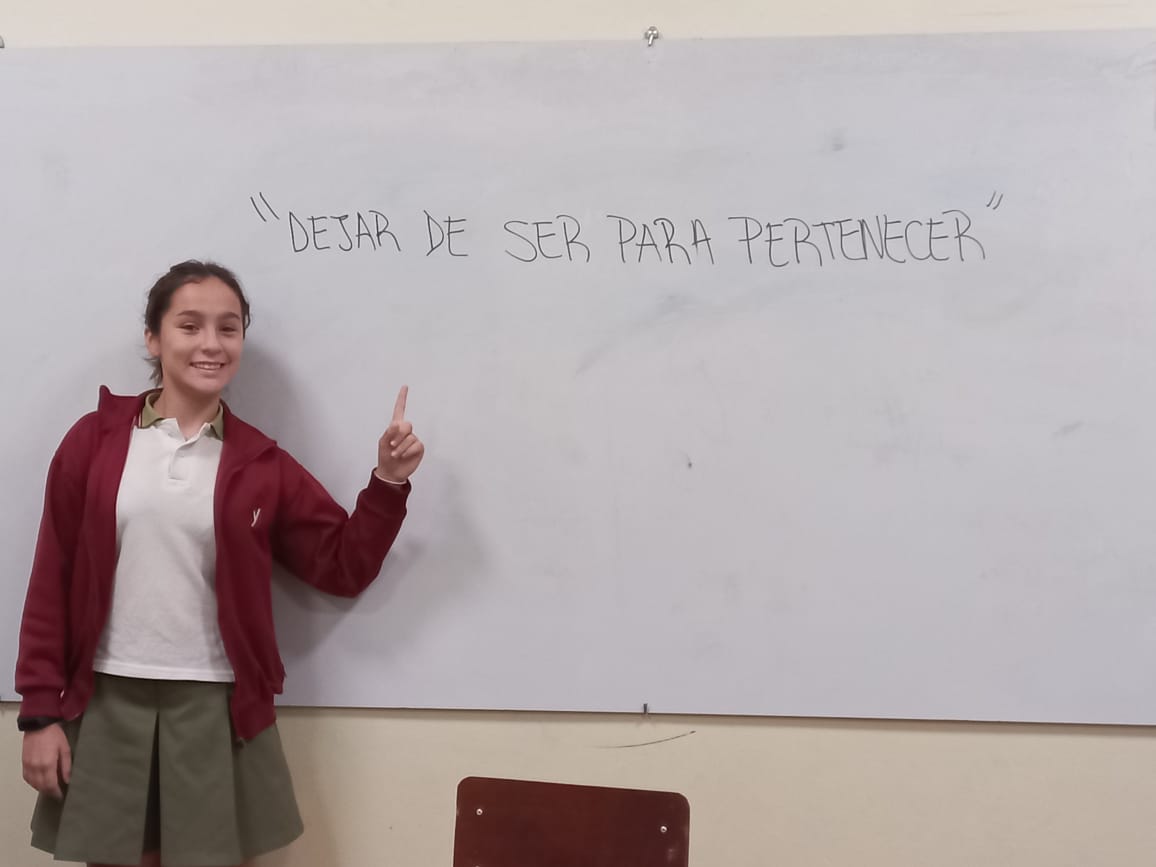 "DEJAR DE SER PARA PERTENECER"
y